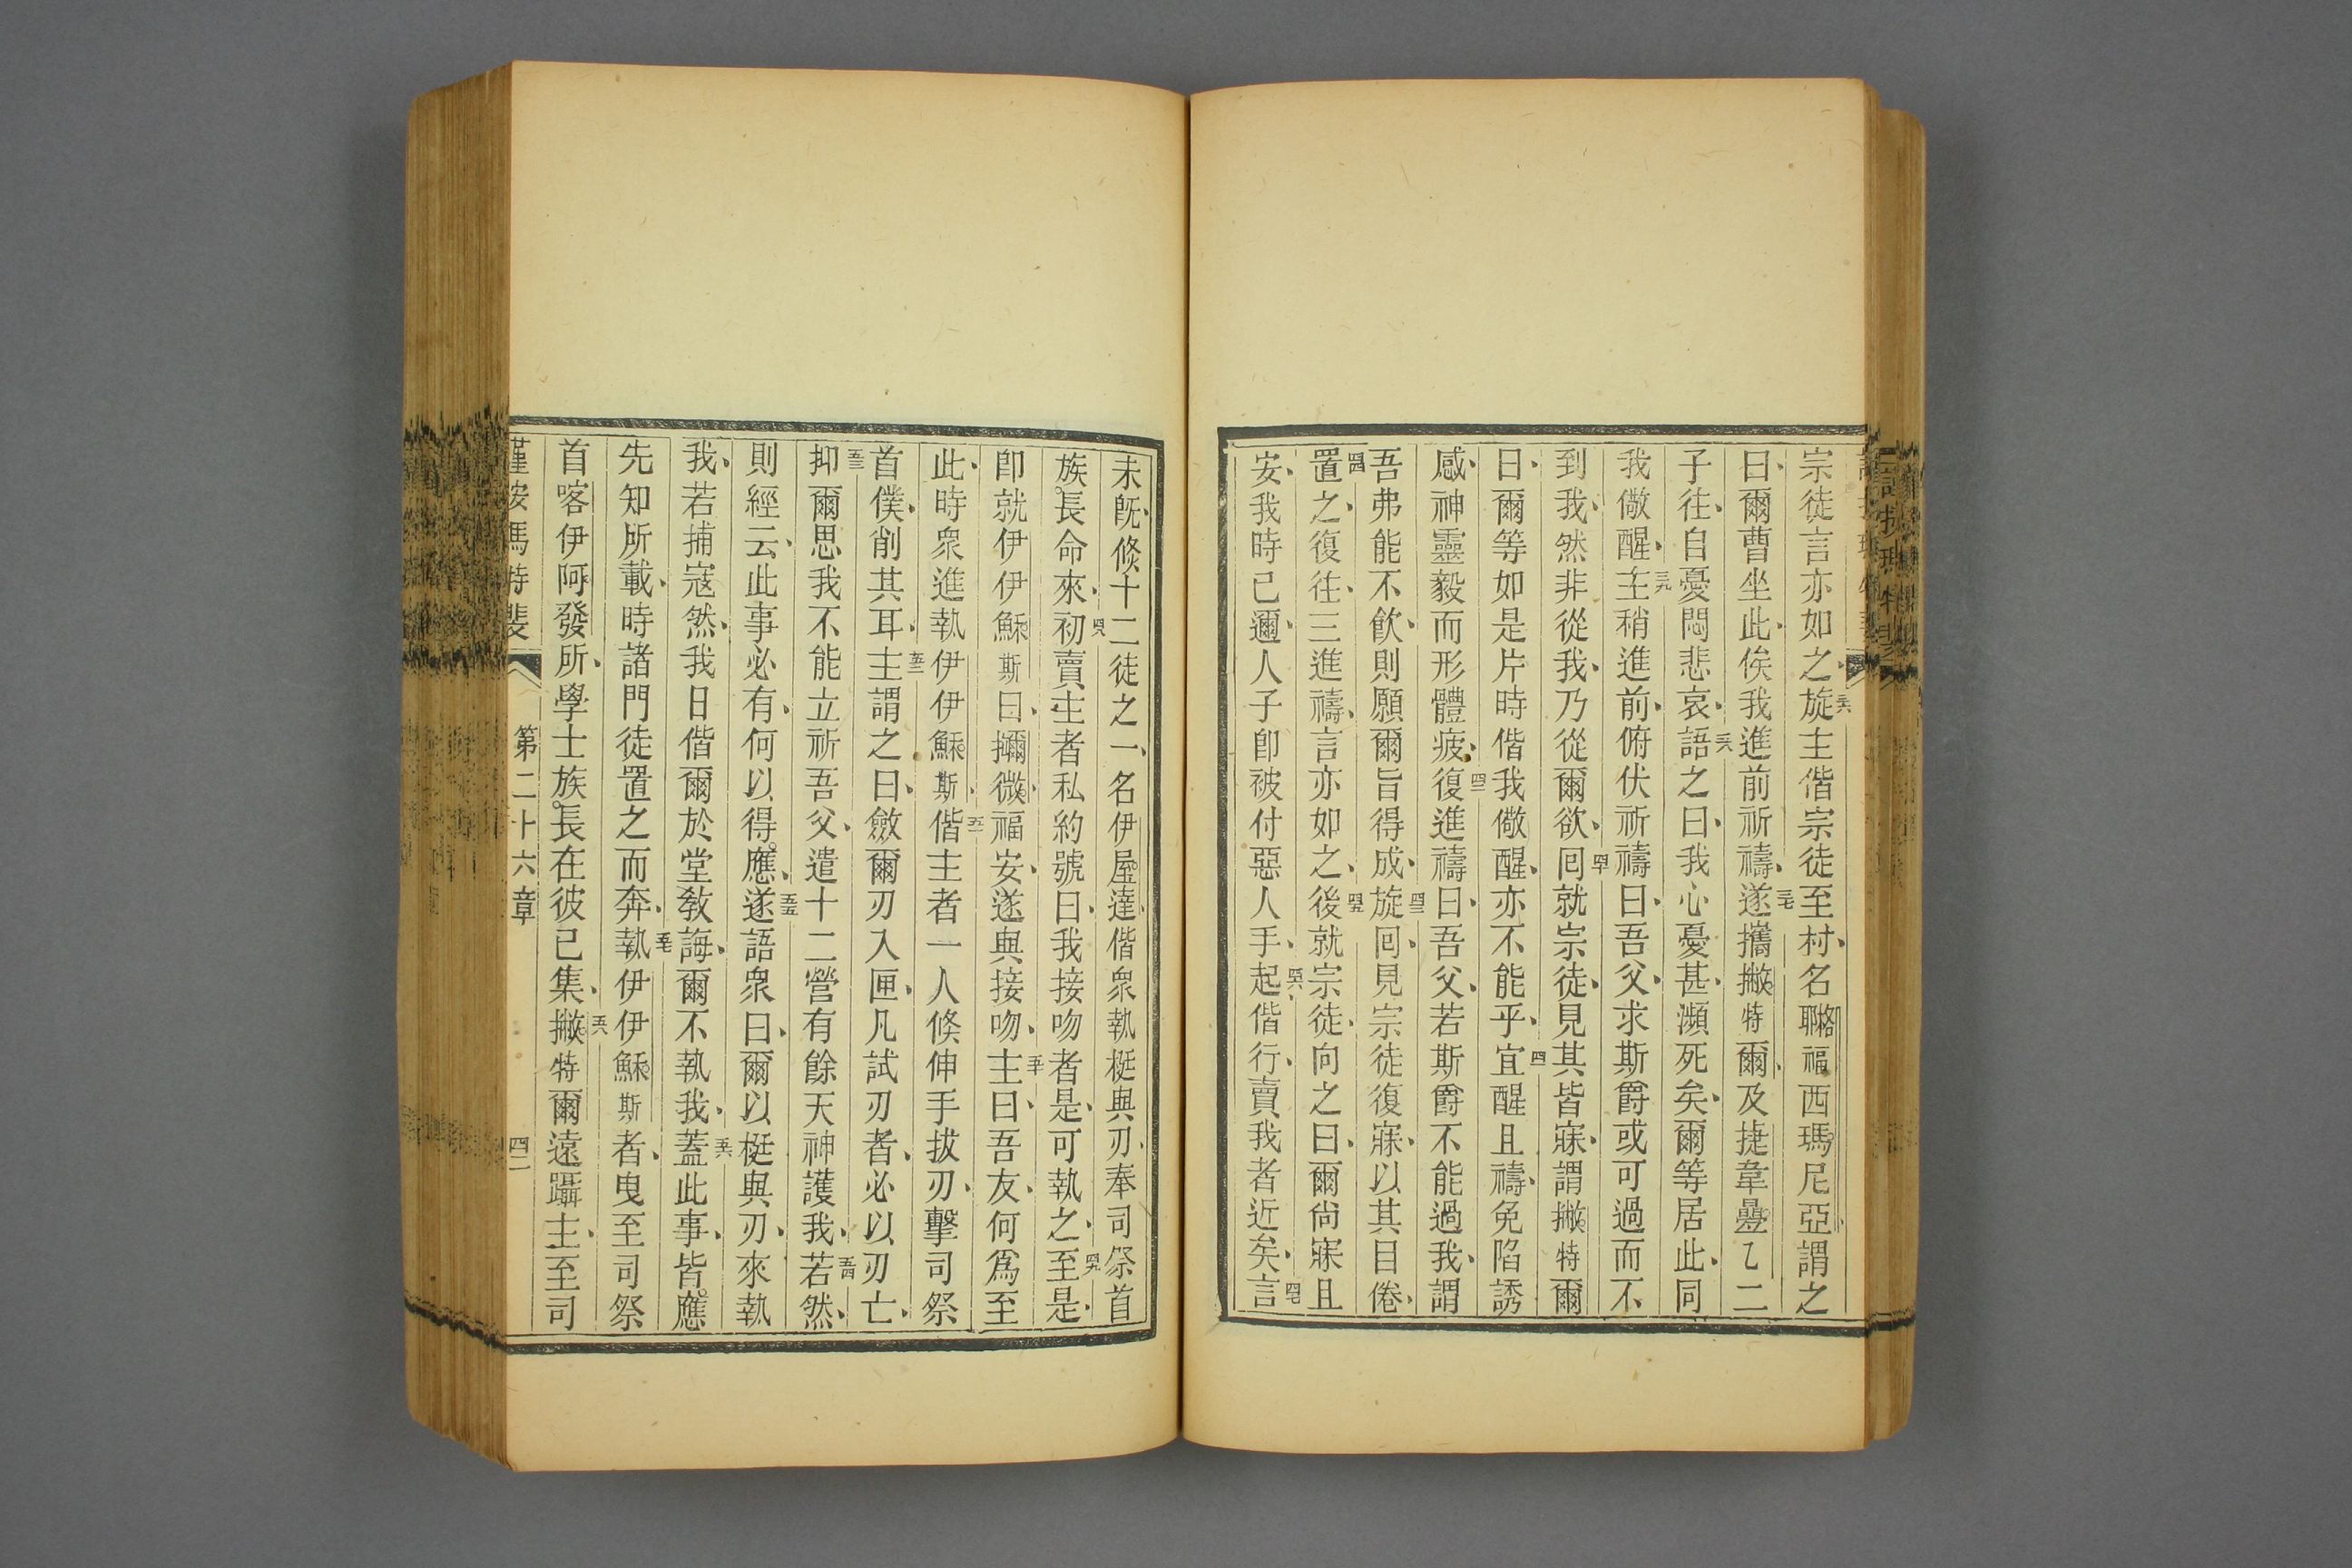 宗徒言亦如之、三六旋主偕宗徒至村、名聊格福西瑪尼亞、謂之
曰、爾曹坐此、俟我進前祈禱、三七遂攜撇特爾、及捷韋疊乙二
子往、自憂悶悲哀、三八語之曰、我心憂甚、瀕死矣、爾等居此、同
我儆醒、三九主稍進前、俯伏祈禱曰、吾父、求斯爵或可過而不
到我、然非從我、乃從爾欲、四十囘就宗徒、見其皆寐、謂撇特爾
曰、爾等如是片時偕我儆醒、亦不能乎、四一宜醒且禱、免陷誘
感、神靈毅而形體疲、四二復進禱曰、吾父、若斯爵不能過我、謂
吾弗能不飲、則願爾旨得成、四三旋囘、見宗徒復寐、以其目倦、
四四置之、復往、三進禱、言亦如之、四五後就宗徒、向之曰、爾尚寐且
安、我時已邇、人子卽被付惡人手、四六起偕行、賣我者近矣、四七言
未旣、倏十二徒之一、名伊屋達、偕衆執梃與刃、奉司祭首
族長命來、四八初賣主者私約號曰、我接吻者是、可執之、四九至是、
卽就伊伊穌斯曰、撝微、福安、遂與接吻、五十主曰、吾友、何爲至
此、時衆進執伊伊穌斯、五一偕主者一人倏伸手拔刃、擊司祭
首僕、削其耳、五二主謂之曰、斂爾刃入匣、凡試刃者、必以刃亡、
五三抑爾思我不能立祈吾父、遣十二營有餘天神護我、五四若然、
則經云、此事必有、何以得應、五五遂語衆曰、爾以梃與刃、來執
我、若捕寇然、我日偕爾於堂敎誨、爾不執我、五六蓋此事、皆應
先知所載、時諸門徒置之而奔、五七執伊伊穌斯者、曳至司祭
首喀伊阿發所、學士族長在彼已集、五八撇特爾遠躡主、至司
第二十六章
四二